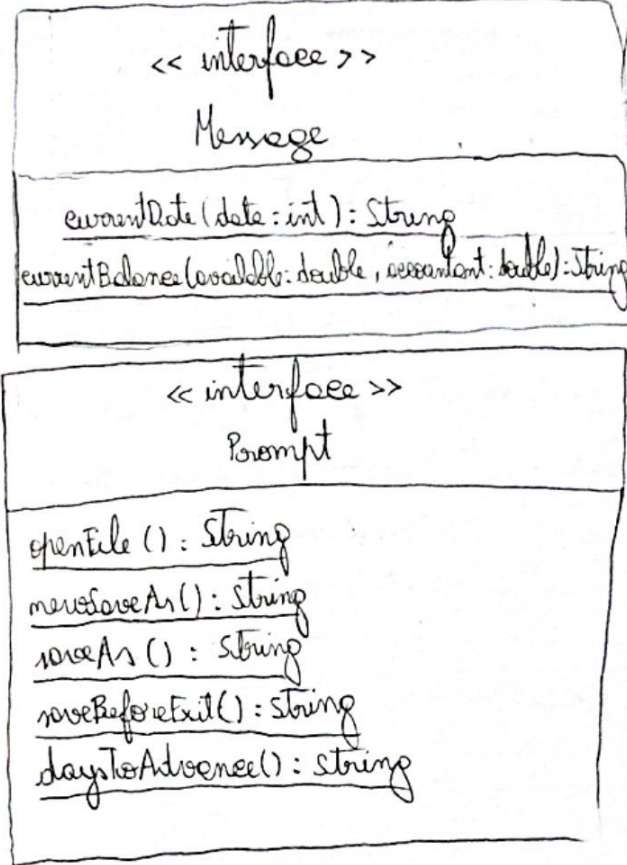 << interface >>
Message
currentDate (date : int) : String
currentBalance(available: double, accountant: double): String
<< interface >>
Prompt
openFile () : String
newSaveAs() : String
saveAs () : String
saveBeforeExit() : String
daysToAdvance() : String